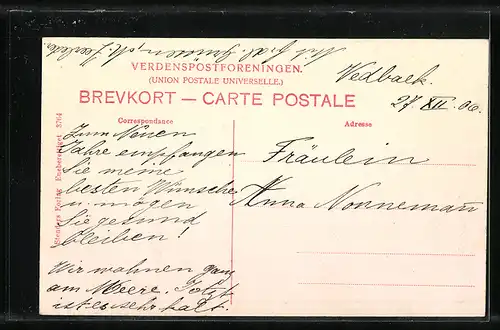 Mit
VERDENSPOSTFORENINGEN.
(UNION POSTALE UNIVERSELLE.)
BREVKORT — CARTE POSTALE
Vedbaek.
27. XII. 06.
Correspondance
Adresse
Zum Neuen
Jahre empfangen
Sie meine
besten Wünsche
u. mögen
Sie gesund
bleiben!
Wir wohnen ganz
am Meere. Jetzt
ist es sehr kalt.
Fräulein
Anna Nonnemann
Stenders Forlag Eneberettiget 3764